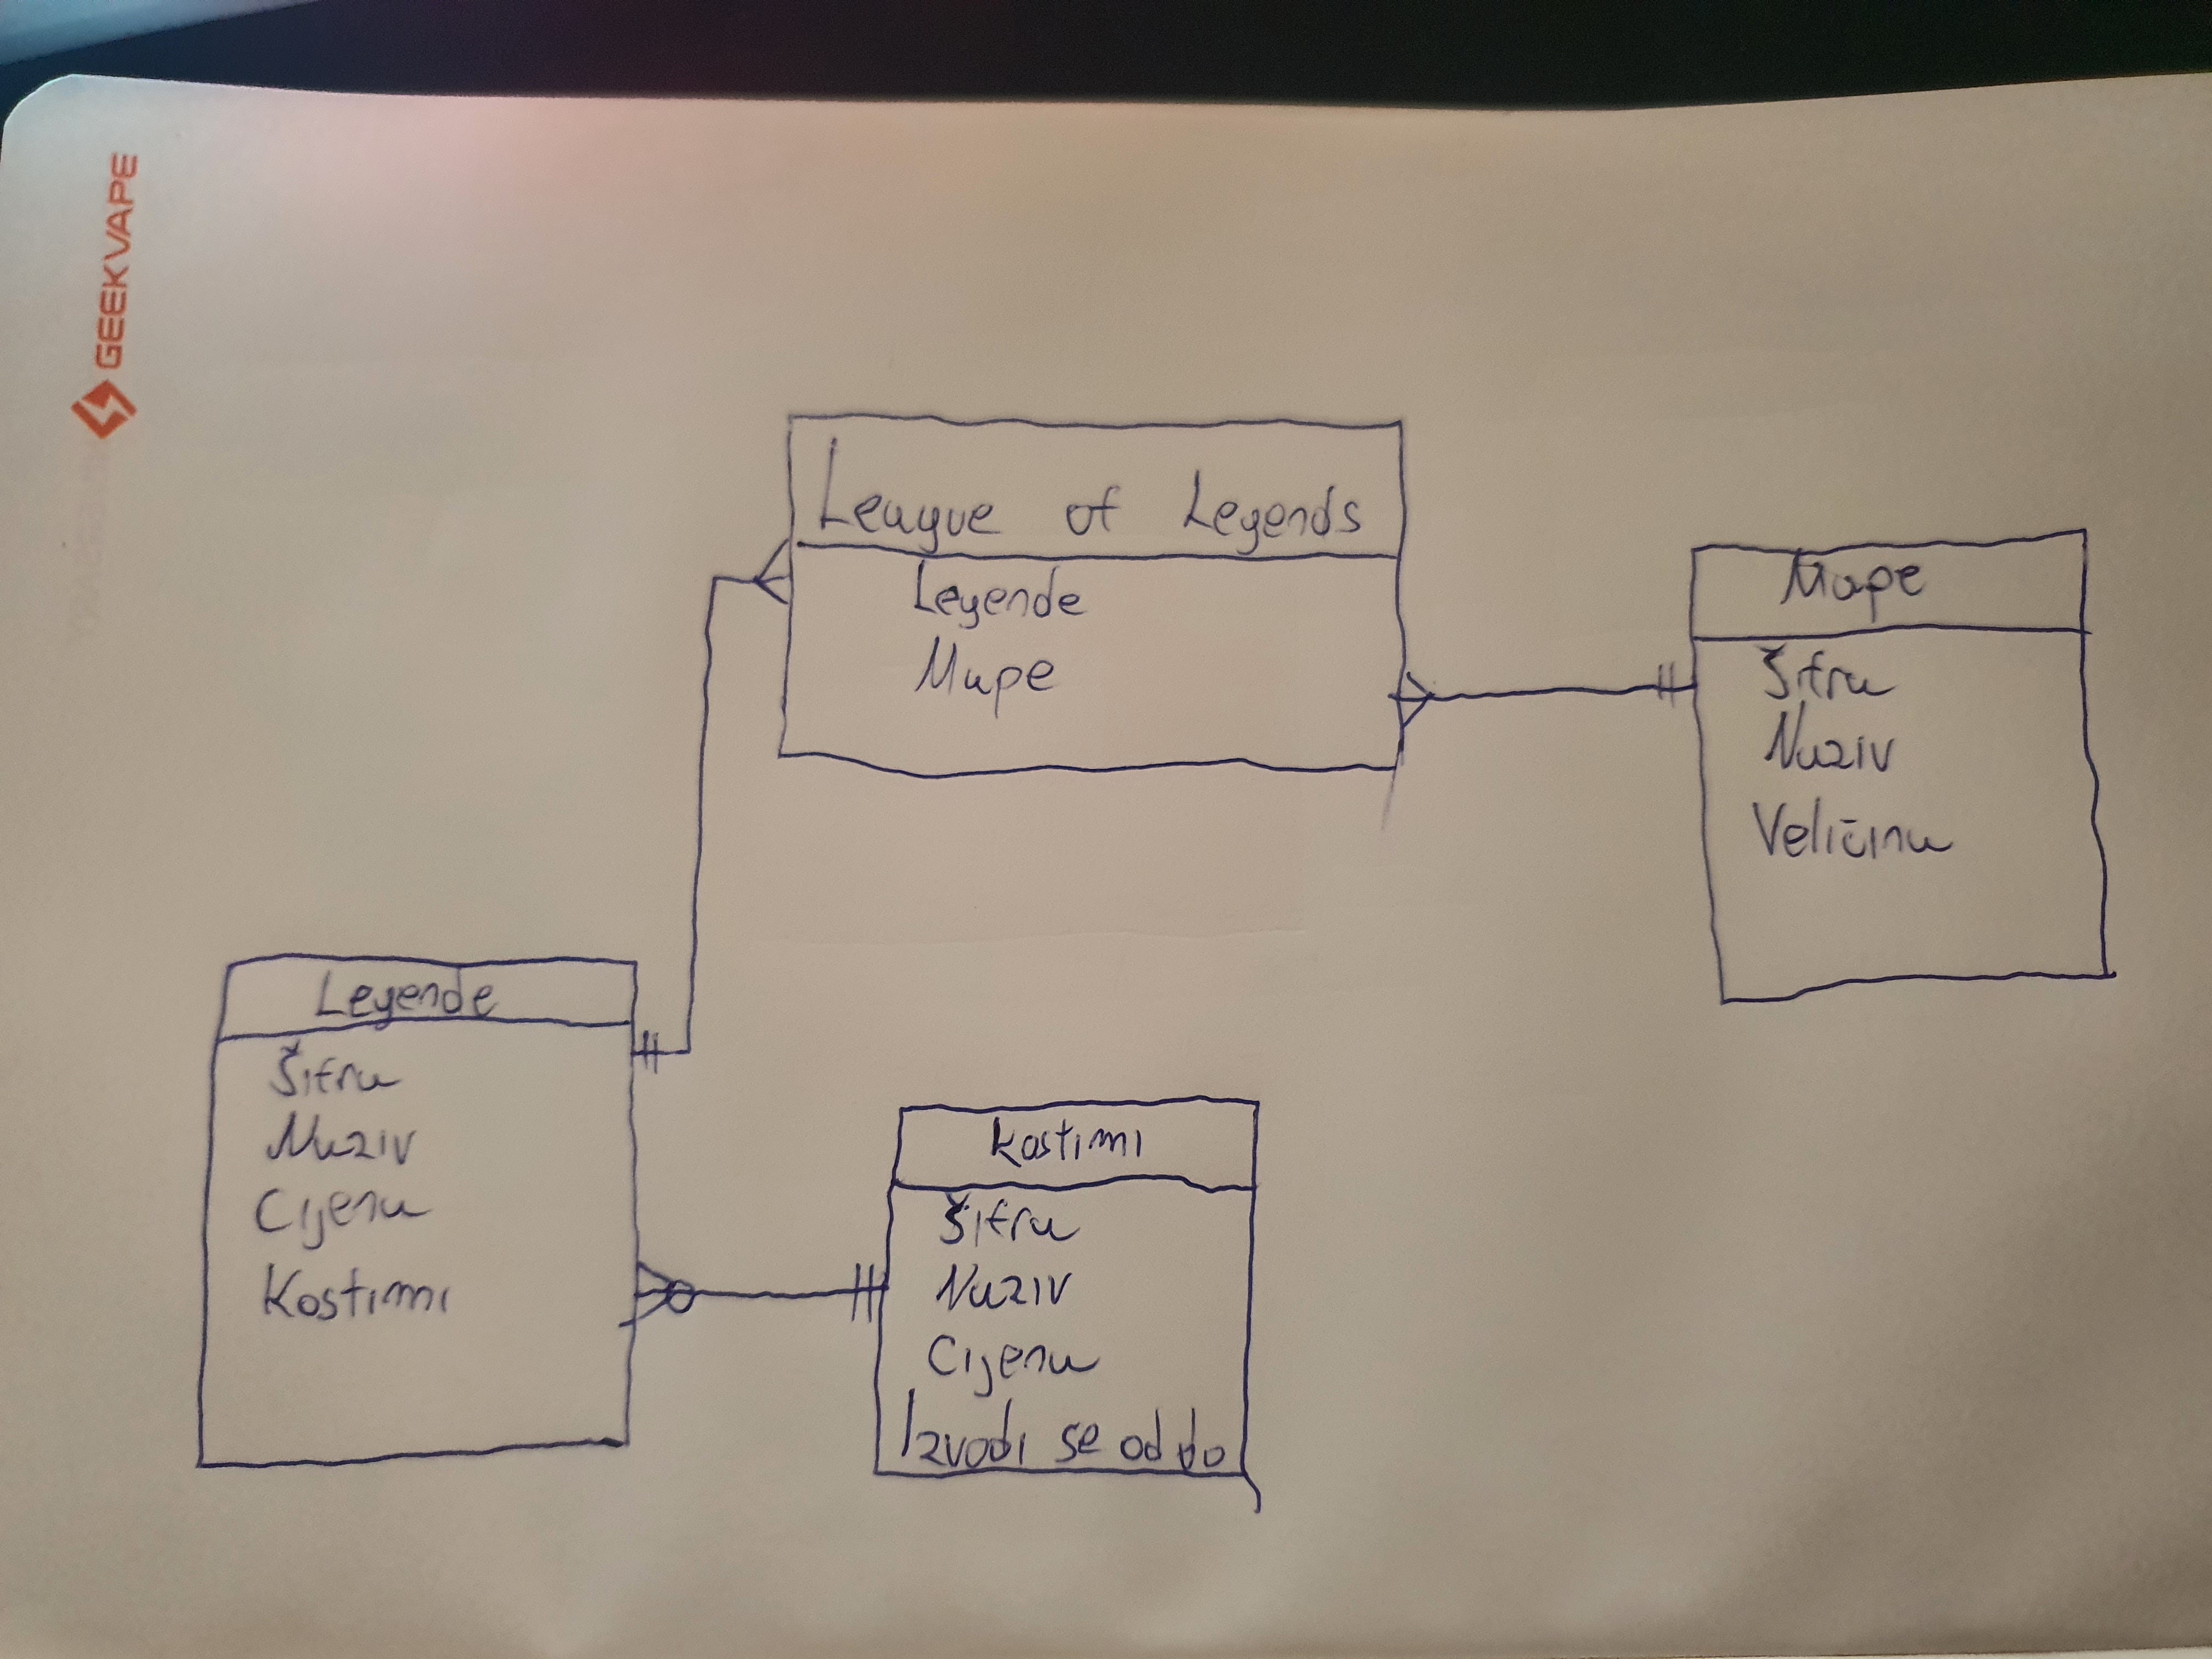 GEEKVAPE
League of Legends
Legende
Mape
Mape
Šifra
Naziv
Veličina
Legende
Šifra
Naziv
Cijena
Kostimi
Kostimi
Šifra
Naziv
Cijena
Izvodi se od do